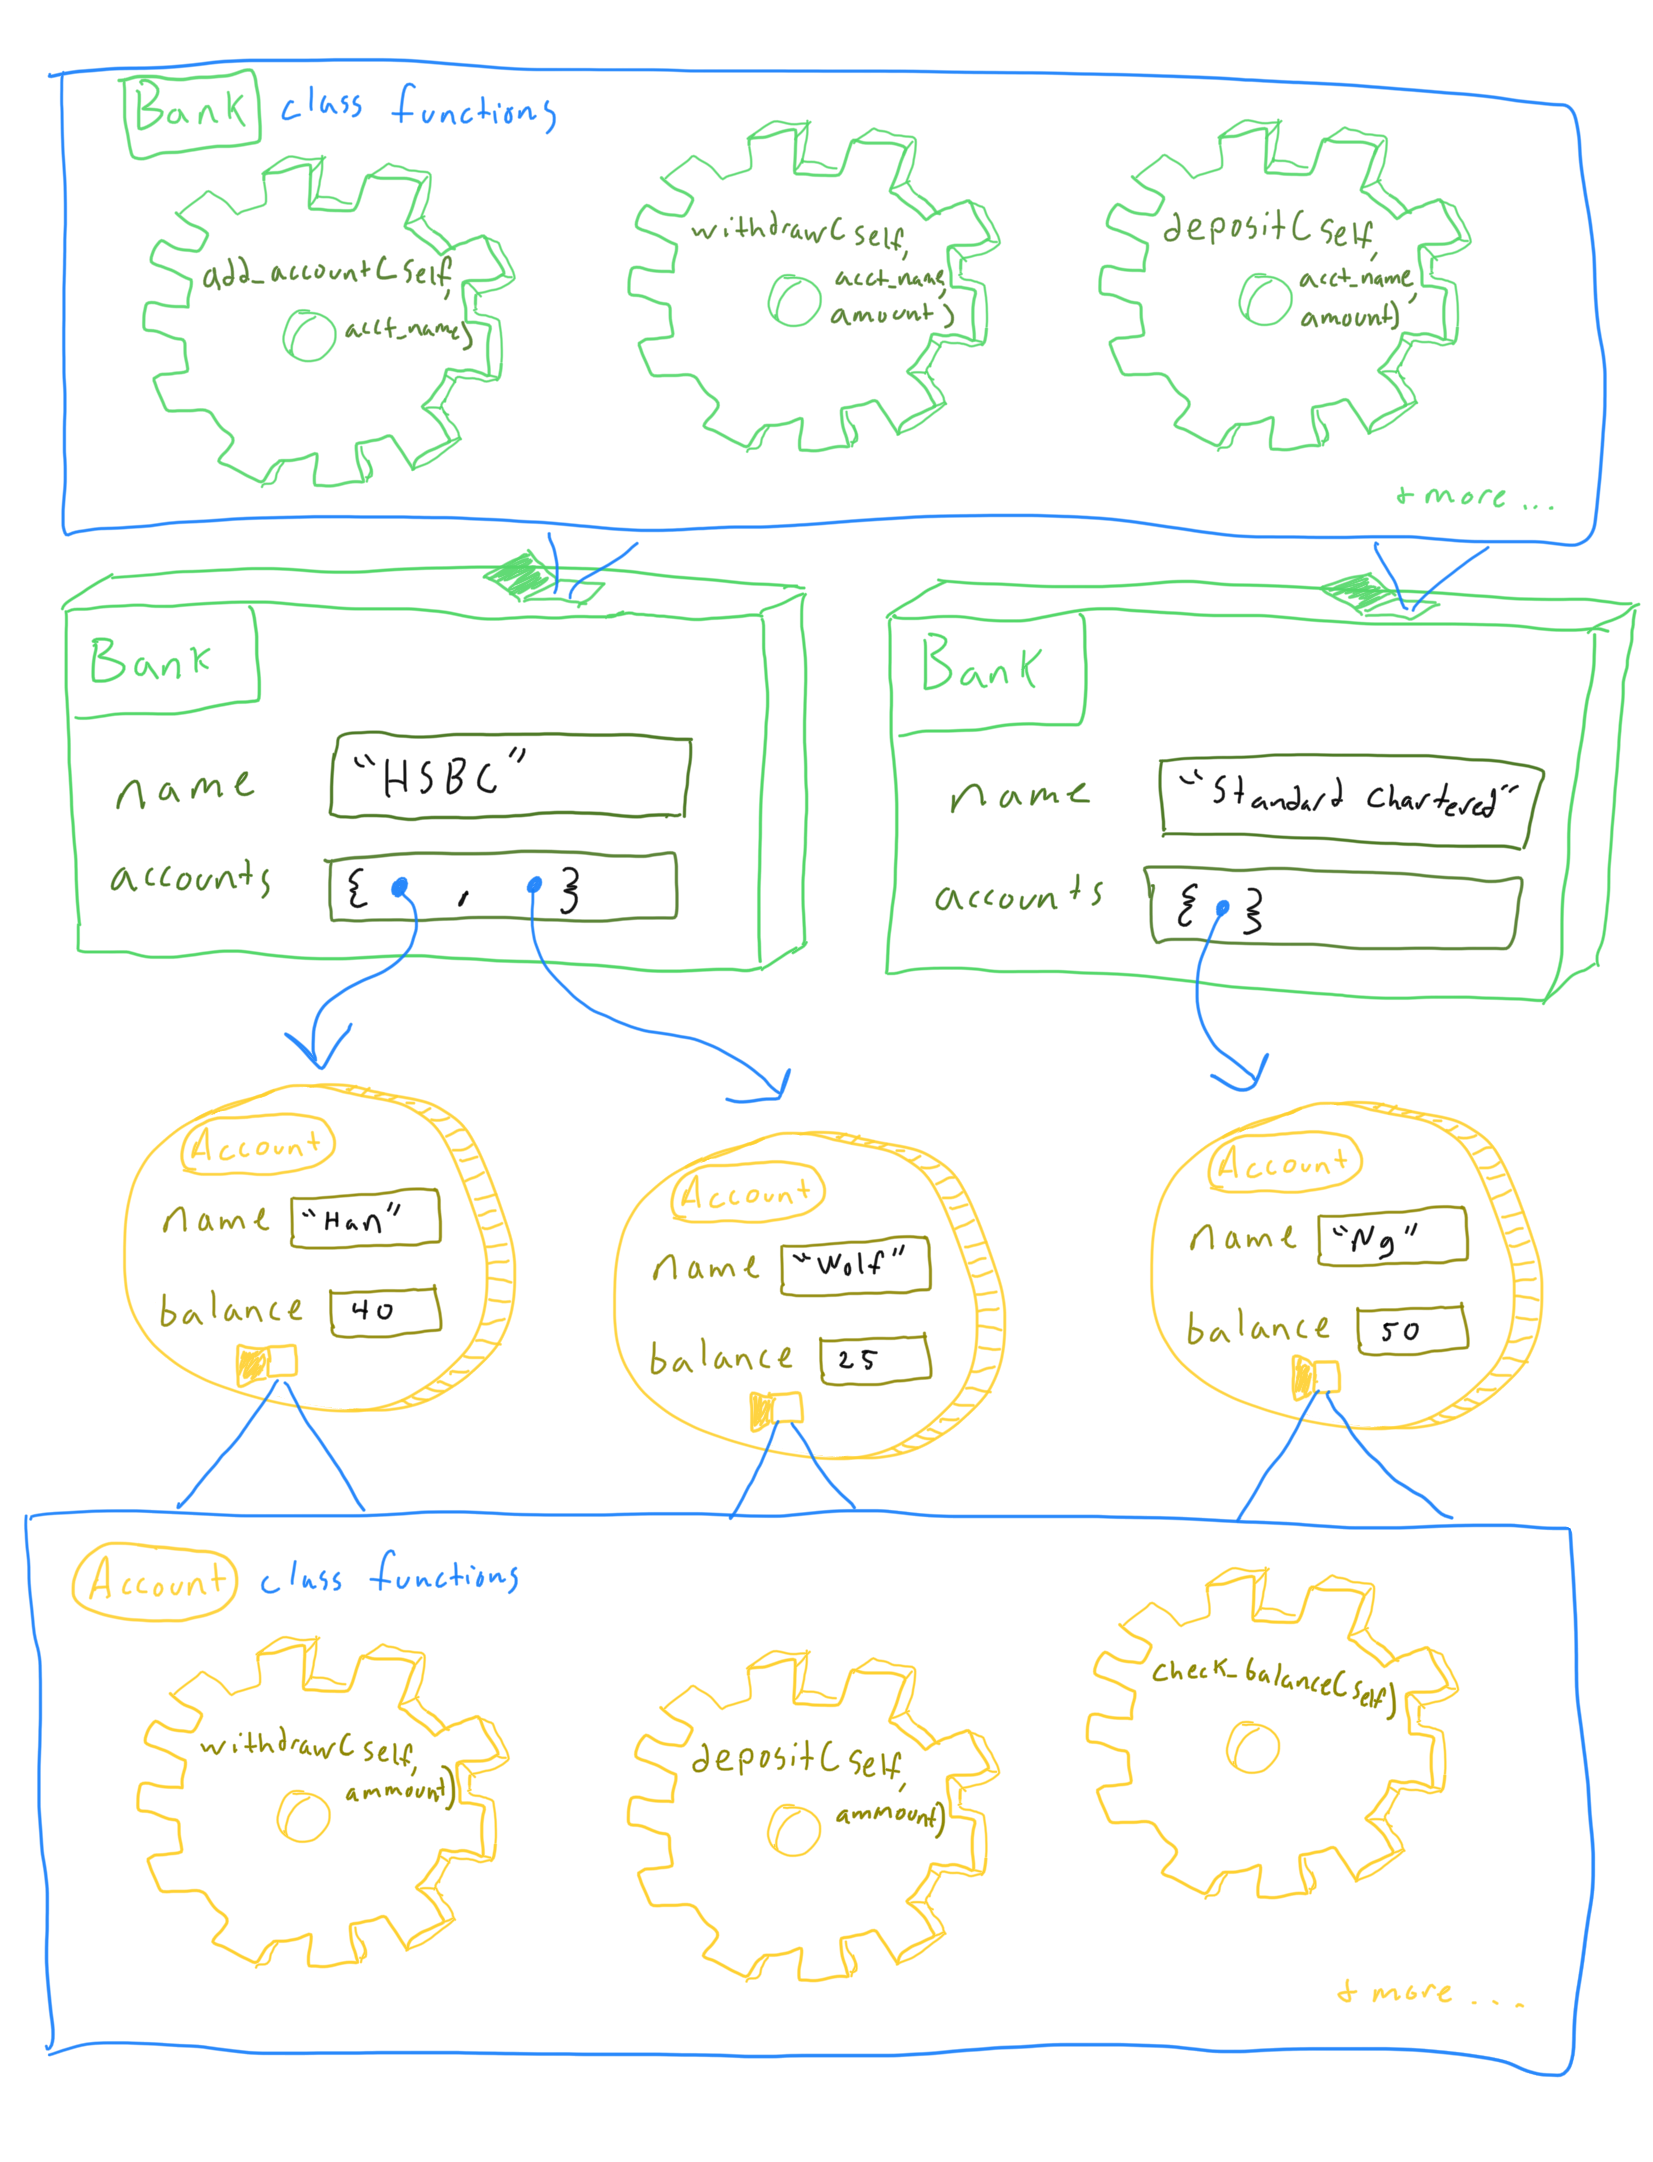 Bank class functions
add_account(self,
acct_name)
withdraw(self,
acct_name,
amount)
deposit(self,
acct_name,
amount)
+ more ...
Bank
name "HSBC"
accounts { , }
Bank
name "Standard Chartered"
accounts { }
Account
name "Han"
balance 40
Account
name "Wolf"
balance 25
Account
name "Ng"
balance 50
Account class functions
withdraw(self,
ammount)
deposit(self,
ammount)
check_balance(self)
+ more ....